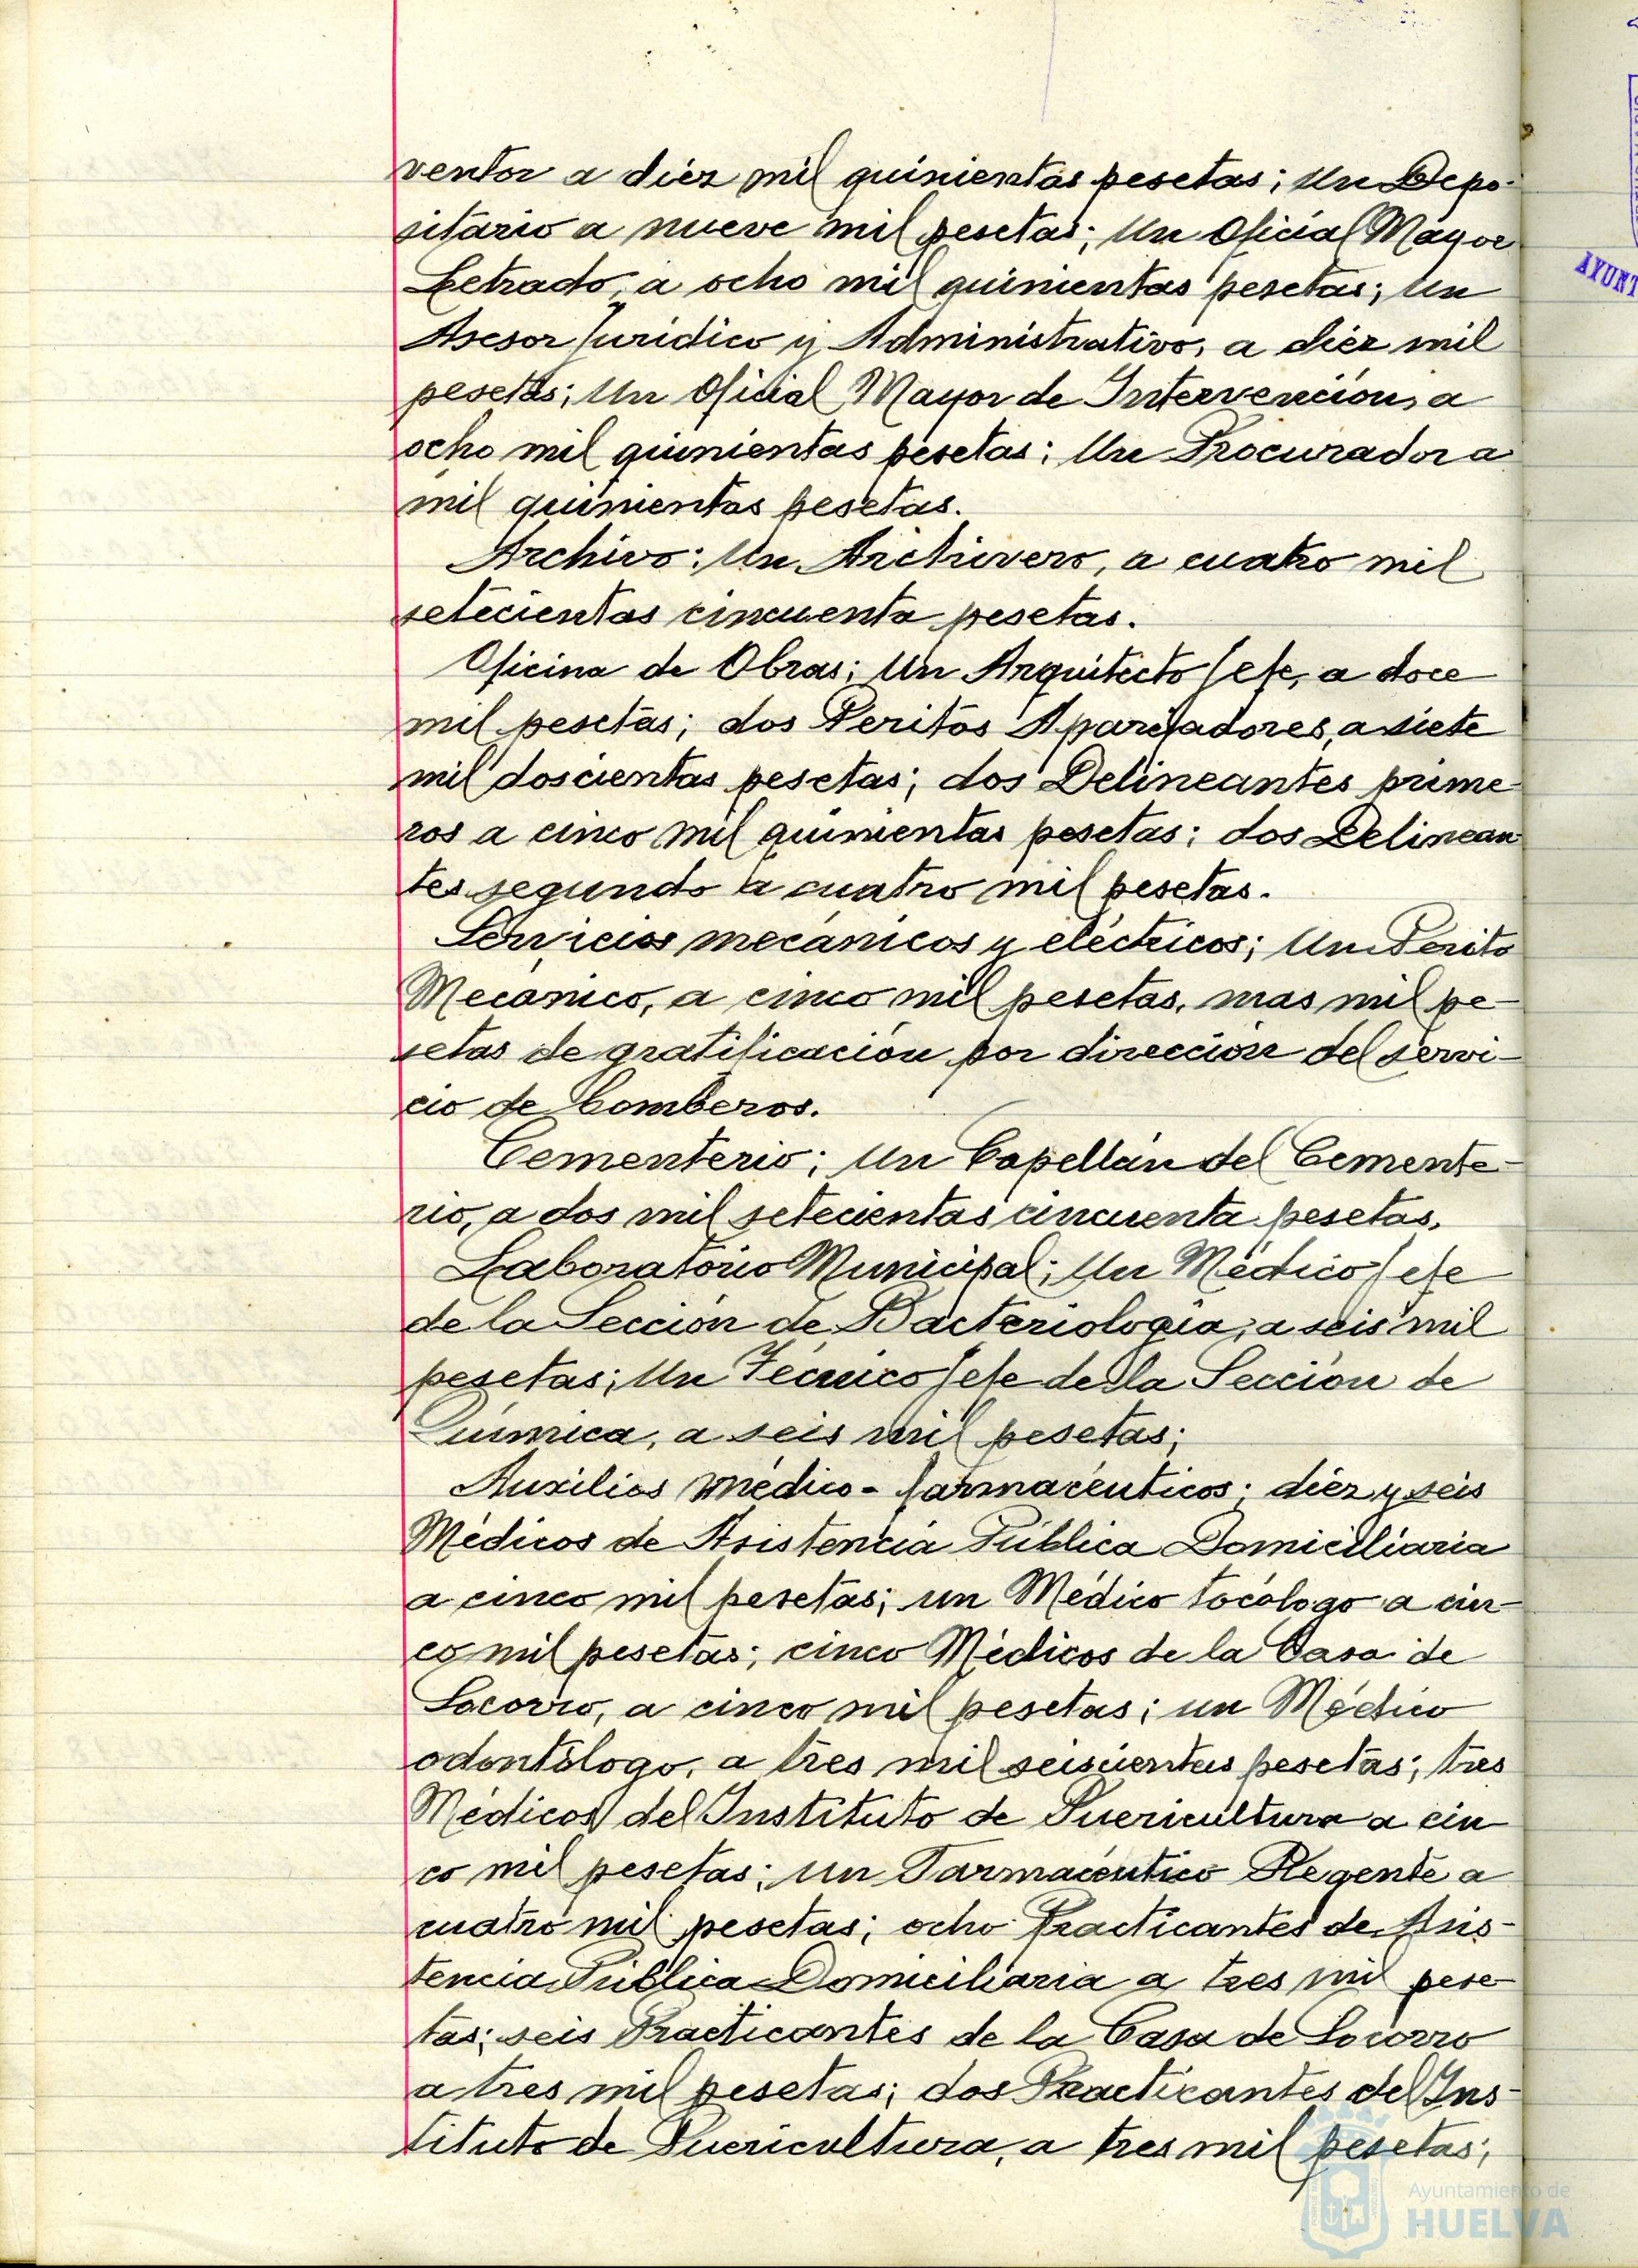 ventor a diez mil quinientas pesetas; Un Depo-
sitario a nueve mil pesetas; Un Oficial Mayor
Letrado, a ocho mil quinientas pesetas; Un
Asesor Jurídico y Administrativo, a diéz mil
pesetas; Un Oficial Mayor de Intervención, a
ocho mil quinientas pesetas; Un Procurador a
mil quinientas pesetas.
Archivo: Un Archivero, a cuatro mil
setecientas cincuenta pesetas.
Oficina de Obras; Un Arquitecto Jefe, a doce
mil pesetas; dos Peritos Aparejadores, a siete
mil doscientas pesetas; dos Delineantes prime-
ros a cinco mil quinientas pesetas; dos Delinean
tes segundo a cuatro mil pesetas.
Servicios mecánicos y eléctricos; Un Perito
Mecánico, a cinco mil pesetas, mas mil pe-
setas de gratificación por dirección del servi-
cio de Bomberos.
Cementerio; Un Capellán del Cemente-
rio, a dos mil setecientas cincuenta pesetas.
Laboratorio Municipal; Un Médico Jefe
de la Sección de Bacteriología, a seis mil
pesetas; Un Técnico Jefe de la Sección de
Química, a seis mil pesetas;
Auxilios médico-farmacéuticos; diéz y seis
Médicos de Asistencia Pública Domicilliaria
a cinco mil pesetas; un Médico tocólogo a cin-
co mil pesetas; cinco Médicos de la Casa de
Socorro, a cinco mil pesetas; un Médico
odontólogo, a tres mil seiscientas pesetas; tres
Médicos del Instituto de Puericultura a cin
co mil pesetas; un Farmacéutico Regente a
cuatro mil pesetas; ocho Practicantes de Asis-
tencia Pública Domiciliaria a tres mil pese-
tas; seis Practicantes de la Casa de Socorro
a tres mil pesetas; dos Practicantes del Ins-
tituto de Puericultura, a tres mil pesetas;
AYUNT
Ayuntamiento de
HUELVA